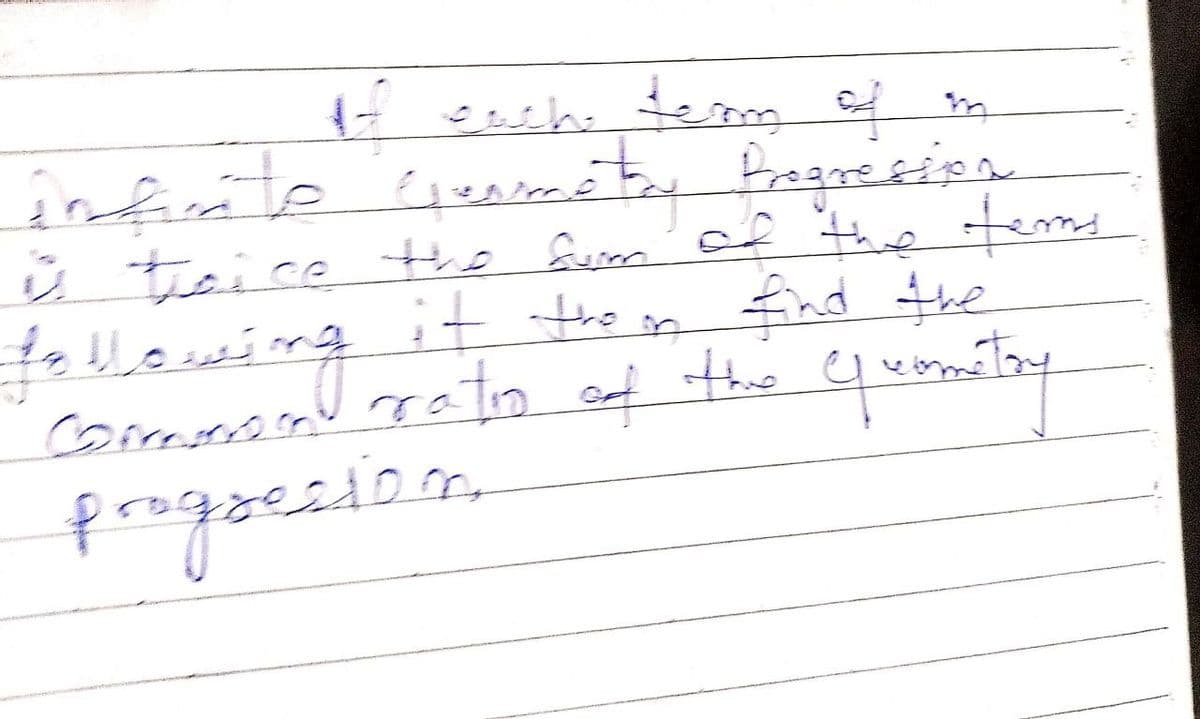 If each term of in
infinite Geometry Progression
is twice the sum of the terms
following it then find the
Common ratio of the geometry
progression.